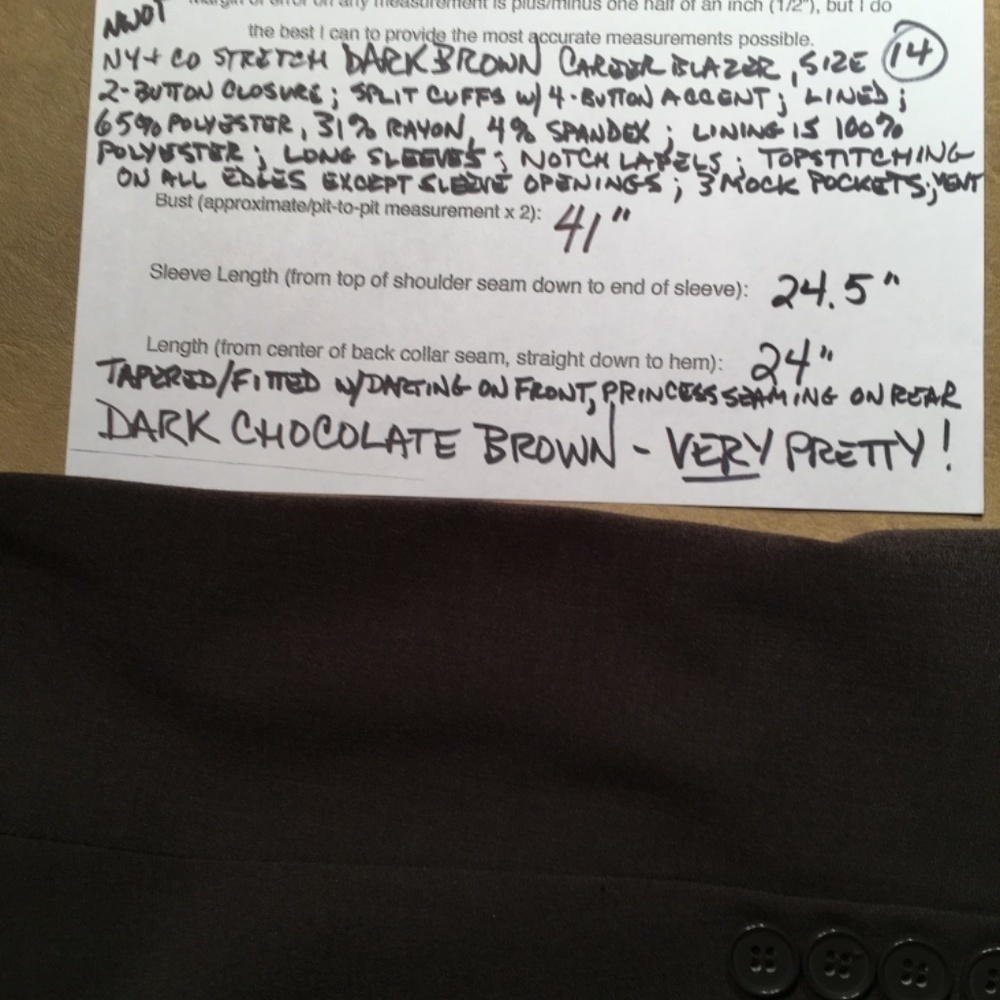 Margin of error on any measurement is plus/minus one half of an inch (1/2"), but I do
NWOT
the best I can to provide the most accurate measurements possible.
NY+CO STRETCH DARK BROWN CAREER BLAZER, SIZE 14
2-BUTTON CLOSURE; SPLIT CUFFS W/ 4-BUTTON ACCENT; LINED;
65% POLYESTER, 31% RAYON, 4% SPANDEX; LINING IS 100%
POLYESTER; LONG SLEEVES; NOTCH LAPELS; TOPSTITCHING
ON ALL EDGES EXCEPT SLEEVE OPENINGS; 3 MOCK POCKETS; VENT
Bust (approximate/pit-to-pit measurement x 2): 41"
Sleeve Length (from top of shoulder seam down to end of sleeve): 24.5"
Length (from center of back collar seam, straight down to hem): 24"
TAPERED/FITTED W/DARTING ON FRONT, PRINCESS SEAMING ON REAR
DARK CHOCOLATE BROWN - VERY PRETTY!